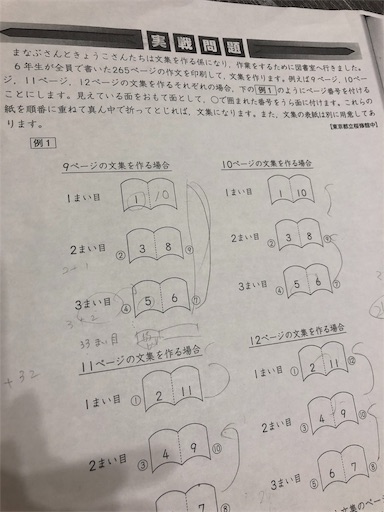 実戦問題
まなぶさんときょうこさんたちは文集を作る係になり、作業をするために図書室へ行きました。
6年生が全員で書いた265ページの作文を印刷して、文集を作ります。例えば9ページ、10ペー
ジ、11ページ、12ページの文集を作るそれぞれの場合、下の例1のようにページ番号を付ける
ことにします。見えている面をおもて面として、○で囲まれた番号をうら面に付けます。これらの
紙を順番に重ねて真ん中で折ってとじれば、文集になります。また、文集の表紙は別に用意してあ
ります。
【東京都立桜修館中】
例1
9ページの文集を作る場合
1まい目 1 10
2まい目 ② 3 8 ⑨
3まい目 ④ 5 6 ⑦
33まい目
10ページの文集を作る場合
1まい目 1 10
2まい目 ② 3 8 ⑨
3まい目 ④ 5 6 ⑦
11ページの文集を作る場合
1まい目 ① 2 11
2まい目 ③ 4 9 ⑩
7 ⑧
12ページの文集を作る場合
1まい目 ① 2 11 ⑫
2まい目 ③ 4 9 ⑩
3まい目 ⑤ 6 7 ⑧
+32
3+2